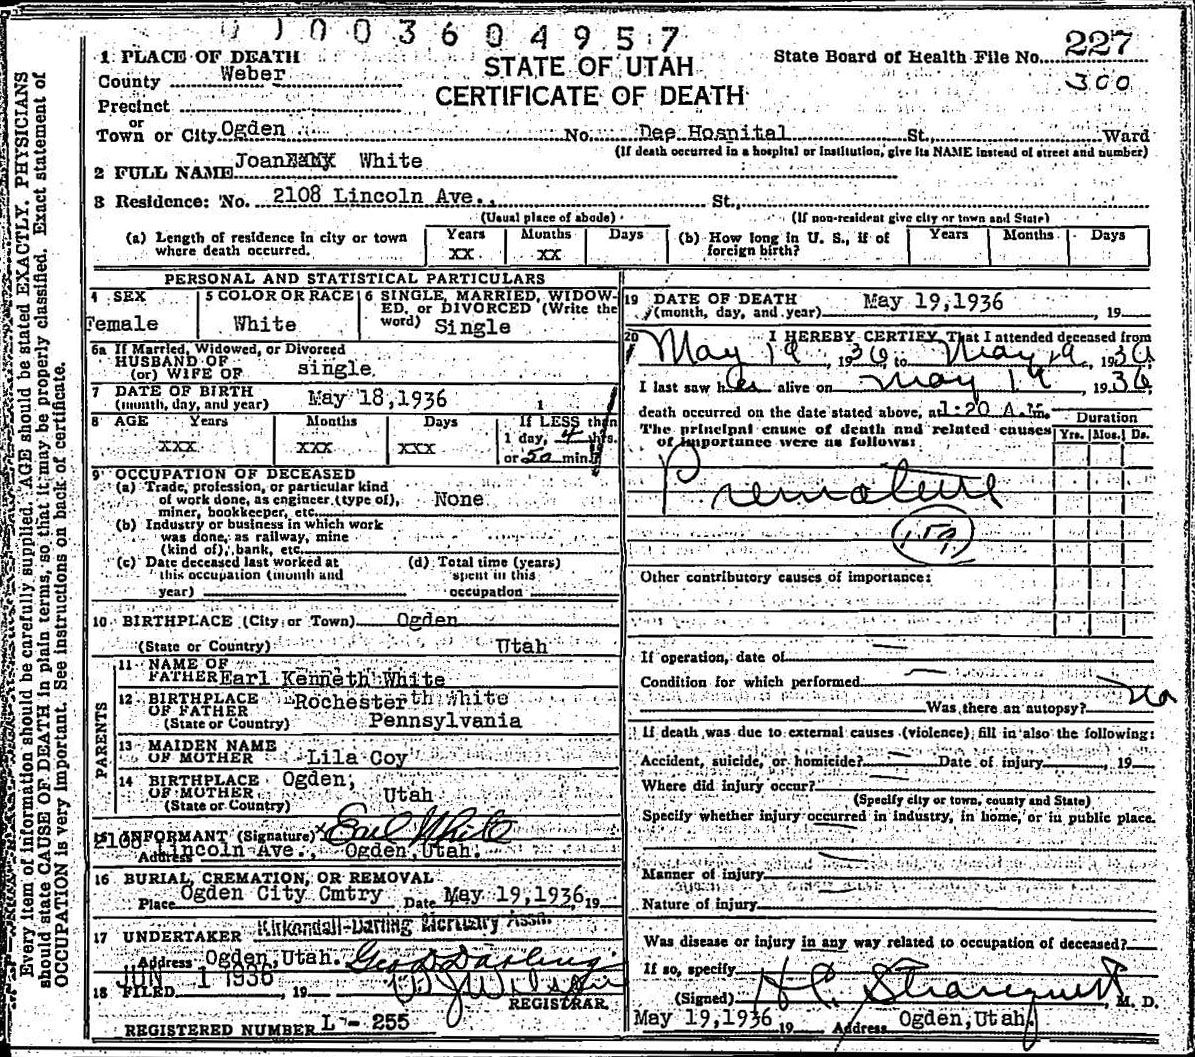 0 1 0 0 3 6 0 4 9 5 7
STATE OF UTAH
CERTIFICATE OF DEATH
State Board of Health File No. 227
300
1 PLACE OF DEATH
County Weber
Precinct
or
Town or City Ogden No. Dee Hospital St., Ward
(If death occurred in a hospital or institution, give its NAME instead of street and number)
2 FULL NAME Joan White
3 Residence: No. 2108 Lincoln Ave., St.,
(Usual place of abode) (If non-resident give city or town and State)
(a) Length of residence in city or town where death occurred. Years XX Months XX Days
(b) How long in U. S., if of foreign birth? Years Months Days
PERSONAL AND STATISTICAL PARTICULARS
4 SEX Female
5 COLOR OR RACE White
6 SINGLE, MARRIED, WIDOW-
ED, or DIVORCED (Write the
word) Single
6a If Married, Widowed, or Divorced
HUSBAND OF
(or) WIFE OF single
7 DATE OF BIRTH
(month, day, and year) May 18,1936 1
8 AGE Years XXX Months XXX Days XXX
If LESS than
1 day, 4 hrs.
or 50 min.
9 OCCUPATION OF DECEASED
(a) Trade, profession, or particular kind
of work done, as engineer, (type of),
miner, bookkeeper, etc. None
(b) Industry or business in which work
was done, as railway, mine
(kind of), bank, etc.
(c) Date deceased last worked at
this occupation (month and
year)
(d) Total time (years)
spent in this
occupation
10 BIRTHPLACE (City or Town) Ogden
(State or Country) Utah
PARENTS
11 NAME OF
FATHER Earl Kenneth White
12 BIRTHPLACE Rochester th White
OF FATHER
(State or Country) Pennsylvania
13 MAIDEN NAME
OF MOTHER Lila Coy
14 BIRTHPLACE Ogden,
OF MOTHER
(State or Country) Utah
15 INFORMANT (Signature) x Earl White
2108 Lincoln Ave., Ogden,Utah.
Address
16 BURIAL, CREMATION, OR REMOVAL
Place Ogden City Cmtry Date May 19,1936, 19
17 UNDERTAKER Kirkendall-Darling Mortuary Assn.
Address Ogden,Utah. Geo D Darling
18 FILED JUN 1 1936, 19
REGISTRAR
REGISTERED NUMBER L - 255
19 DATE OF DEATH
(month, day, and year) May 19,1936, 19
20 I HEREBY CERTIFY That I attended deceased from
May 19, 1936 to May 19, 1936
I last saw her alive on May 19, 1936,
death occurred on the date stated above, at 1:20 A.M.
The principal cause of death and related causes
of importance were as follows:
Duration
Yrs. Mos. Ds.
Premature
159
Other contributory causes of importance:
If operation, date of
Condition for which performed
Was there an autopsy? no
If death was due to external causes (violence) fill in also the following:
Accident, suicide, or homicide? Date of injury , 19
Where did injury occur?
(Specify city or town, county and State)
Specify whether injury occurred in industry, in home, or in public place.
Manner of injury
Nature of injury
Was disease or injury in any way related to occupation of deceased?
If so, specify
(Signed) M. D.
May 19,1936 19 Address Ogden,Utah.
Every item of information should be carefully supplied. AGE should be stated EXACTLY. PHYSICIANS
should state CAUSE OF DEATH in plain terms, so that it may be properly classified. Exact statement of
OCCUPATION is very important. See instructions on back of certificate.